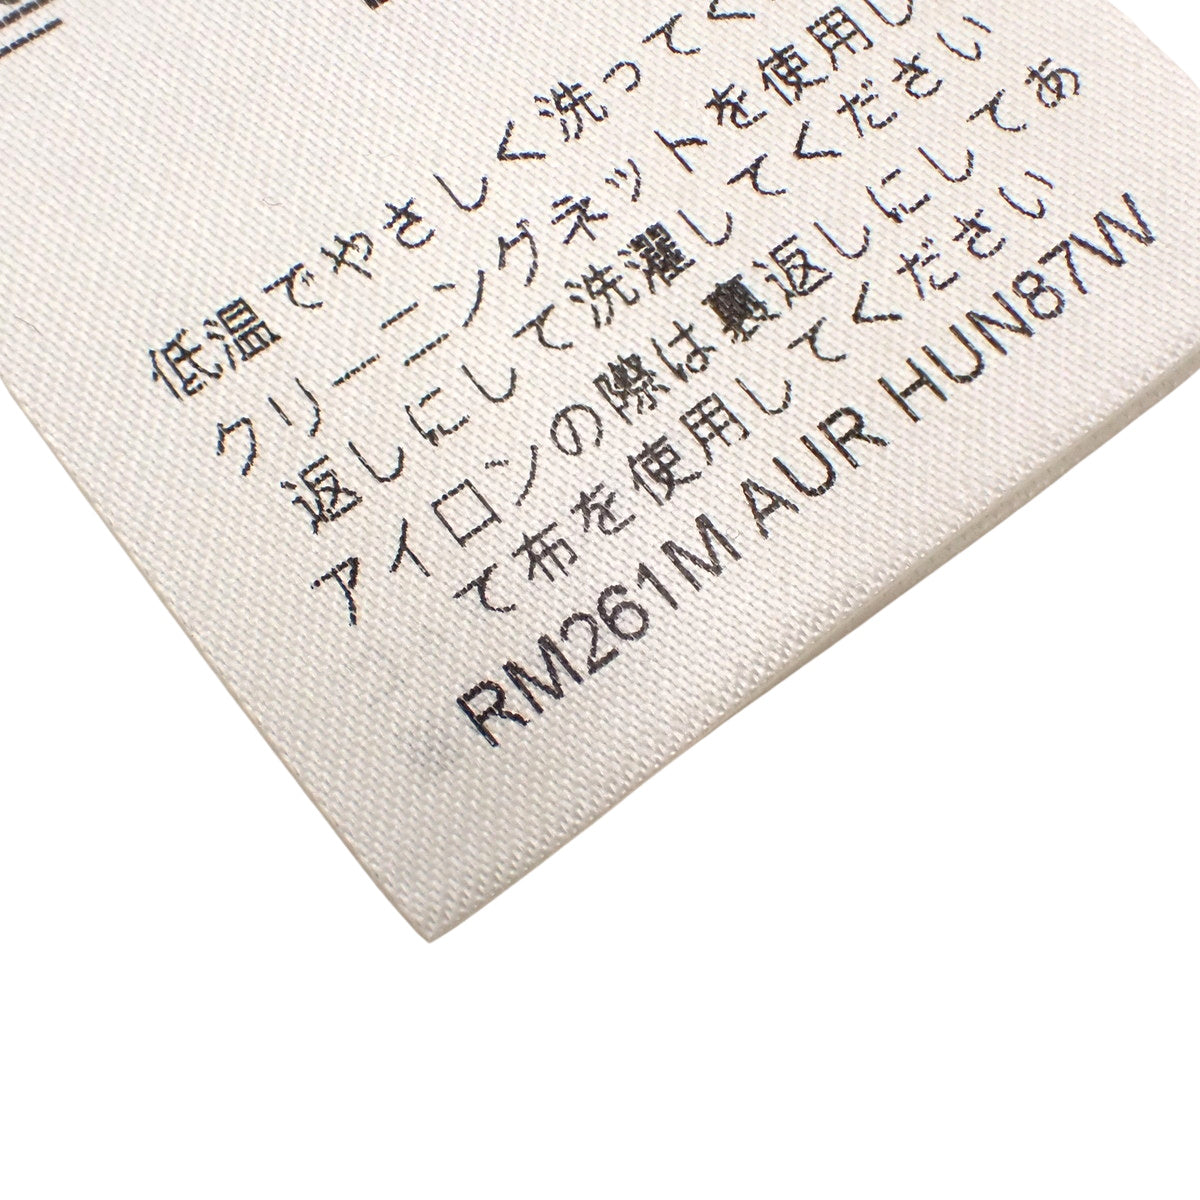 低温でやさしく洗ってく
クリーニングネットを使用し
返しにして洗濯してください
アイロンの際は裏返しにしてあ
て布を使用してください
RM261M AUR HUN87W